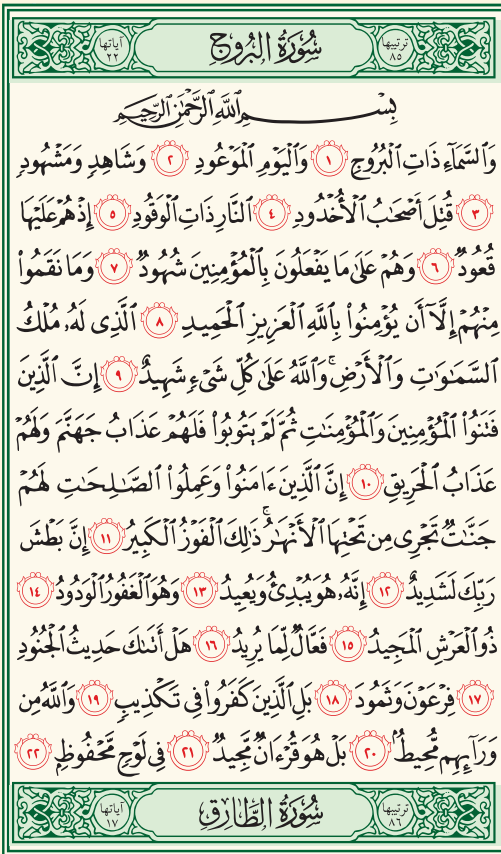 ترتيبها ٨٥ سُورَةُ البُرُوجِ آياتها ٢٢
بِسْمِ ٱللَّهِ ٱلرَّحْمَٰنِ ٱلرَّحِيمِ
وَٱلسَّمَآءِ ذَاتِ ٱلْبُرُوجِ ١ وَٱلْيَوْمِ ٱلْمَوْعُودِ ٢ وَشَاهِدٍ وَمَشْهُودٍ
٣ قُتِلَ أَصْحَٰبُ ٱلْأُخْدُودِ ٤ ٱلنَّارِ ذَاتِ ٱلْوَقُودِ ٥ إِذْ هُمْ عَلَيْهَا
قُعُودٌ ٦ وَهُمْ عَلَىٰ مَا يَفْعَلُونَ بِٱلْمُؤْمِنِينَ شُهُودٌ ٧ وَمَا نَقَمُوا۟
مِنْهُمْ إِلَّآ أَن يُؤْمِنُوا۟ بِٱللَّهِ ٱلْعَزِيزِ ٱلْحَمِيدِ ٨ ٱلَّذِى لَهُۥ مُلْكُ
ٱلسَّمَٰوَٰتِ وَٱلْأَرْضِ ۚ وَٱللَّهُ عَلَىٰ كُلِّ شَىْءٍ شَهِيدٌ ٩ إِنَّ ٱلَّذِينَ
فَتَنُوا۟ ٱلْمُؤْمِنِينَ وَٱلْمُؤْمِنَٰتِ ثُمَّ لَمْ يَتُوبُوا۟ فَلَهُمْ عَذَابُ جَهَنَّمَ وَلَهُمْ
عَذَابُ ٱلْحَرِيقِ ١٠ إِنَّ ٱلَّذِينَ ءَامَنُوا۟ وَعَمِلُوا۟ ٱلصَّٰلِحَٰتِ لَهُمْ
جَنَّٰتٌ تَجْرِى مِن تَحْتِهَا ٱلْأَنْهَٰرُ ۚ ذَٰلِكَ ٱلْفَوْزُ ٱلْكَبِيرُ ١١ إِنَّ بَطْشَ
رَبِّكَ لَشَدِيدٌ ١٢ إِنَّهُۥ هُوَ يُبْدِئُ وَيُعِيدُ ١٣ وَهُوَ ٱلْغَفُورُ ٱلْوَدُودُ ١٤
ذُو ٱلْعَرْشِ ٱلْمَجِيدُ ١٥ فَعَّالٌ لِّمَا يُرِيدُ ١٦ هَلْ أَتَىٰكَ حَدِيثُ ٱلْجُنُودِ
١٧ فِرْعَوْنَ وَثَمُودَ ١٨ بَلِ ٱلَّذِينَ كَفَرُوا۟ فِى تَكْذِيبٍ ١٩ وَٱللَّهُ مِن
وَرَآئِهِم مُّحِيطٌۢ ٢٠ بَلْ هُوَ قُرْءَانٌ مَّجِيدٌ ٢١ فِى لَوْحٍ مَّحْفُوظٍۭ ٢٢
ترتيبها ٨٦ سُورَةُ الطَّارِقِ آياتها ١٧